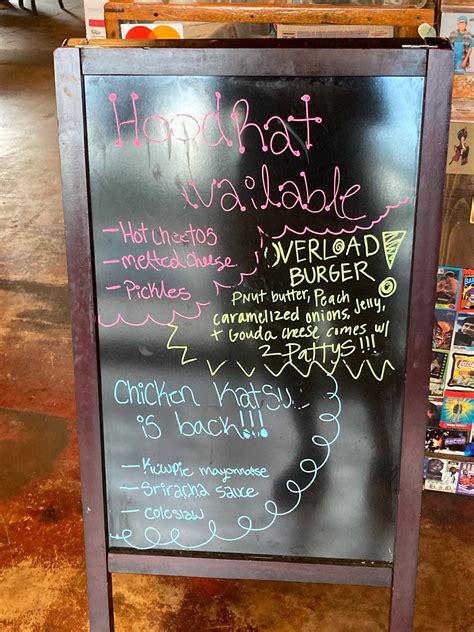 Hoodrat
vailable
- Hot cheetos
- melted cheese
- Pickles
OVERLOAD!
BURGER
PNut butter, Peach Jelly,
caramelized onions,
+ Gouda cheese comes w/
2 Pattys!!!
Chicken Katsu
is back!!!
- Kewpie mayonnaise
- Sriracha sauce
- coleslaw